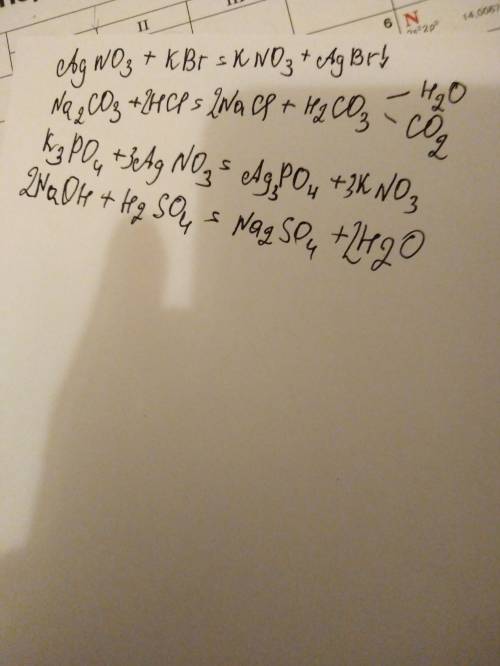 II
III
6 N 14,0067
AgNO₃ + KBr = KNO₃ + AgBr↓
Na₂CO₃ + 2HCl = 2NaCl + H₂CO₃ — H₂O
CO₂
K₃PO₄ + 3AgNO₃ = Ag₃PO₄ + 3KNO₃
2NaOH + H₂SO₄ = Na₂SO₄ + 2H₂O